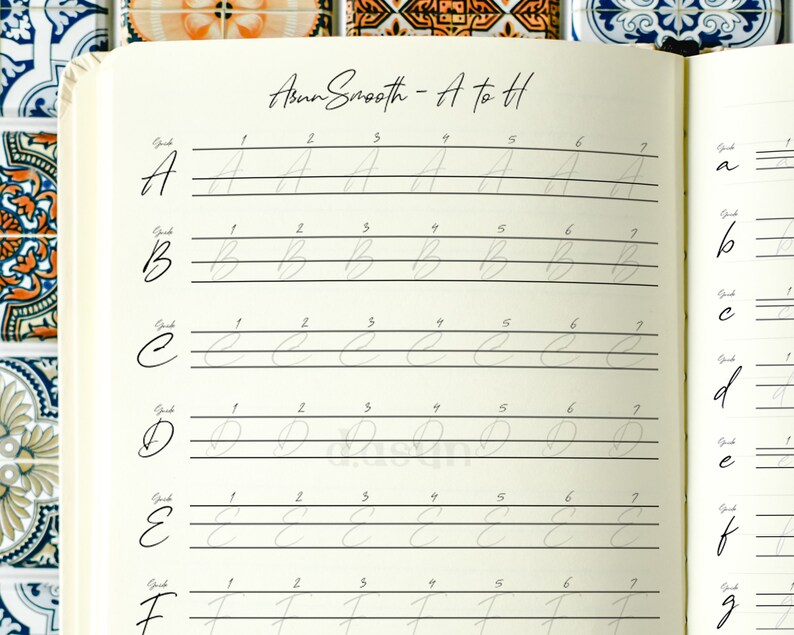 AsunSmooth - A to H
Guide 1 2 3 4 5 6 7
A A A A A A A A
Guide 1 2 3 4 5 6 7
B B B B B B B B
Guide 1 2 3 4 5 6 7
C C C C C C C C
Guide 1 2 3 4 5 6 7
D D D D D D D D
d.asun
Guide 1 2 3 4 5 6 7
E E E E E E E E
Guide 1 2 3 4 5 6 7
F F F F F F F F
Guide
a a
Guide
b b
Guide 1
c c
Guide 1
d d
Guide
e e
Guide
f f
Guide 1
g g